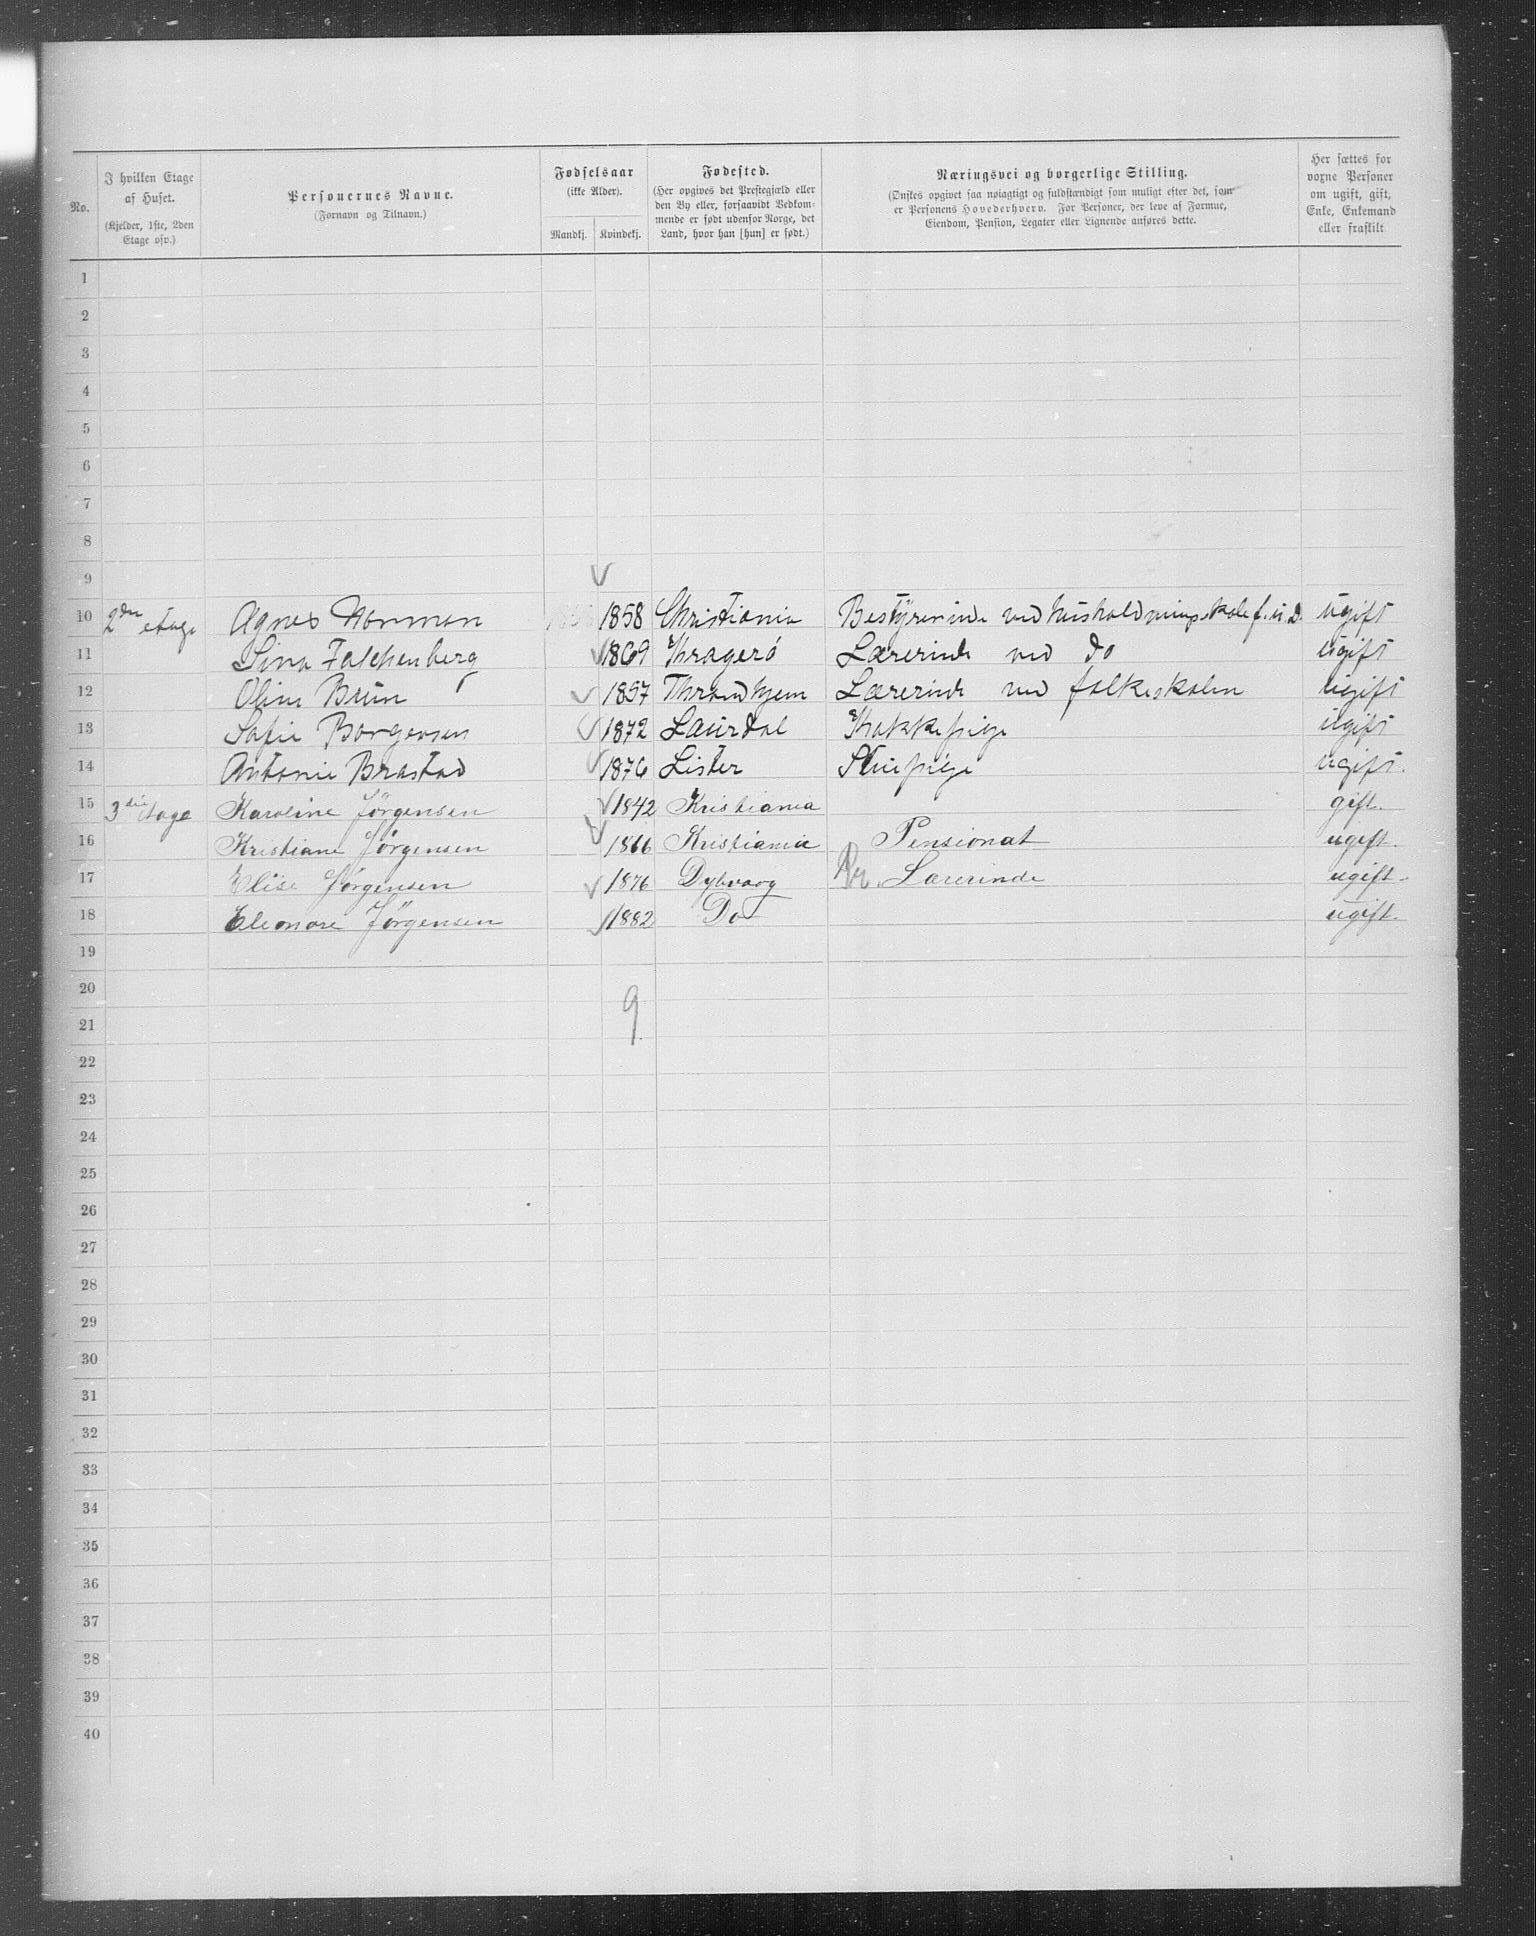 No.
I hvilken Etage af Huset. (Kjelder, 1ste, 2den Etage osv.)
Personernes Navne. (Fornavn og Tilnavn.)
Fødselsaar (ikke Alder). Mandkj. Kvindekj.
Fødested. (Her opgives det Prestegjæld eller den By eller, forsaavidt Vedkommende er født udenfor Norge, det Land, hvor han [hun] er født.)
Næringsvei og borgerlige Stilling. (Ønskes opgivet saa nøiagtigt og fuldstændigt som muligt efter det, som er Personens Hovederhverv. For Personer, der leve af Formue, Eiendom, Pension, Legater eller Lignende anføres dette.)
Her sættes for voxne Personer om ugift, gift, Enke, Enkemand eller fraskilt
1
2
3
4
5
6
7
8
9
10 2den etage Agnes Norman 1858 Christiania Bestyrerinde ved husholdningsskole f. u. D. ugift
11 Sina Falchenberg 1869 Kragerø Lærerinde ved do ugift
12 Oline Brun 1857 Throndhjem Lærerinde ved folkeskolen ugift
13 Sofie Borgersen 1872 Laurdal Kokkepige ugift
14 Antonie Brastad 1876 Lister Stuepige ugift.
15 3die etage Karoline Jörgensen 1842 Kristiania gift.
16 Kristiane Jörgensen 1866 Kristiania Pensionat ugift.
17 Elise Jörgensen 1876 Dybvaag Lærerinde ugift.
18 Eleonore Jörgensen 1882 Do ugift.
19
20
9
21
22
23
24
25
26
27
28
29
30
31
32
33
34
35
36
37
38
39
40